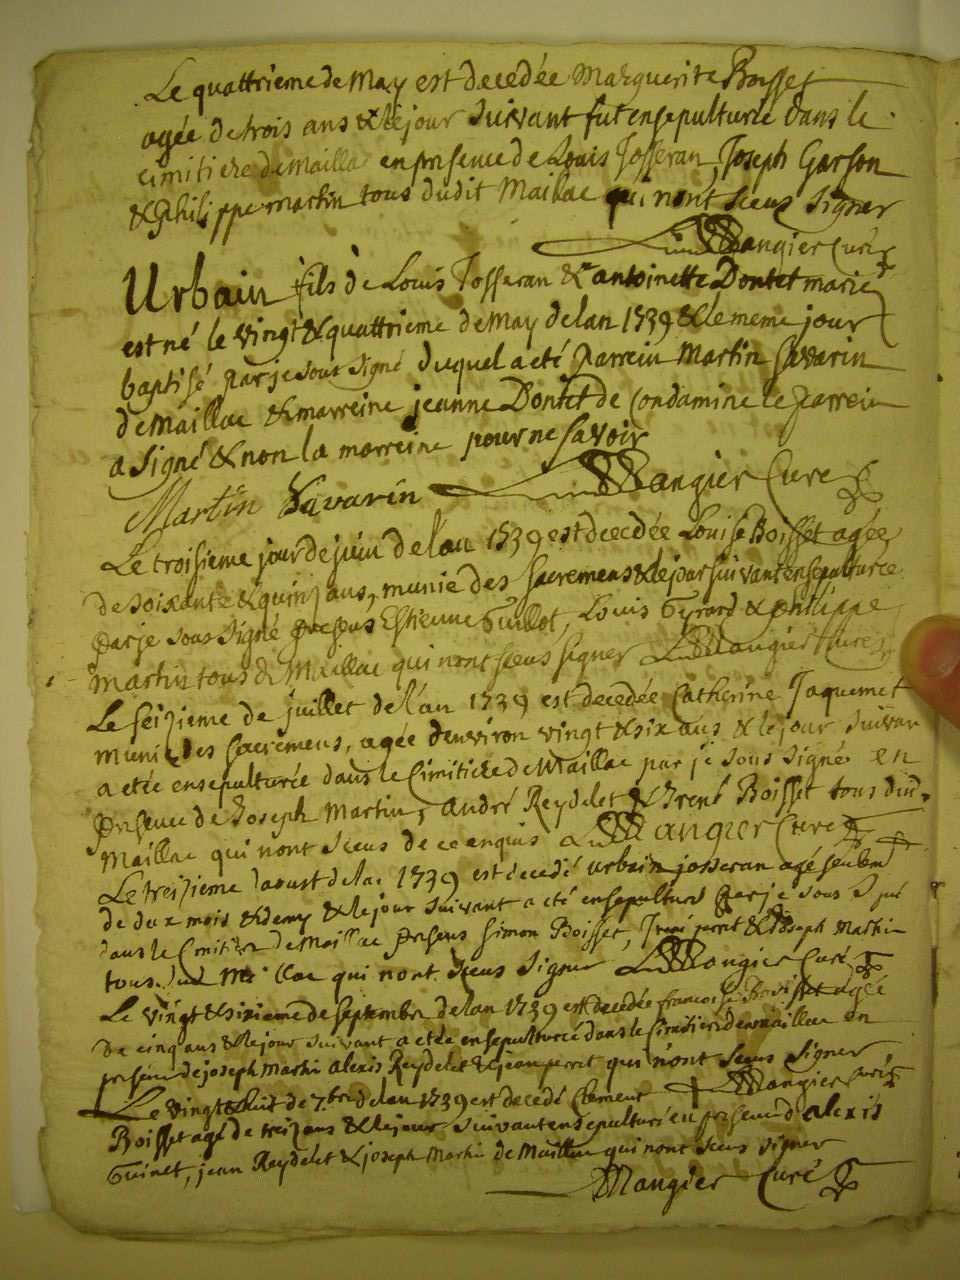 Le quattrieme de May est decedée Marguerite Boisset
agée de trois ans & le jour suivant fut ensepulturée dans le
cimitiere de Mailla en presence de Louis Josseran, Joseph Garson
& Philippe martin tous dudit Maillac qui nont sceus signer
Mangier Curé
Urbain fils de Louis Josseran & antoinette Dontet marié
est né le vingt & quattrieme de May de lan 1739 & le meme jour
baptisé par je sous signé duquel a eté parrein Martin Savarin
de Maillac & marreine jeanne Dontet de Condamine le parrein
a signé & non la marreine pour ne savoir
Martin Savarin Mangier Curé
Le troisieme jour de juin de l'an 1739 est decedée Louise Boisset agée
de soixante & quinz ans, munie des sacremens & le jour suivant ensepulturée
par je sous signé presens Estienne Guillot, Louis Gyrard & philippe
martin tous de Maillac qui nont sceus signer Mangier Curé
Le seizieme de juillet de l'an 1739 est decedée Catherine Jaquemet
munie des sacremens, agée denviron vingt & six ans & le jour suivan
a etée ensepulturée dans le Cimitiere de Maillac par je sous signé en
presence de Joseph Martin, André Reydelet & René Boisset tous dud.
Maillac qui nont sceus de ce enquis Mangier Curé
Le treizieme daoust de lan 1739 est decedé urbain josseran agé seulemt
de deux mois & demy & le jour suivant a eté ensepulturé par je sous signé
dans le Cimitiere de Maillac presens Simon Boisset, perret & Joseph Martin
tous dud Maillac qui nont sceus signer Mangier Curé
Le vingt & sixieme de septembre de lan 1739 est decedée francoise Boisset agée
de cinq ans & le jour suivant a etée ensepulturée dans le Cimitiere de maillac en
presence de joseph Martin alexis Reydelet & jean perret qui n'ont sceus signer
Mangier Curé
Le vingt & huit de 7.bre de lan 1739 est decedé Clement
Boisset agé de treiz ans & le jour suivant ensepulturé en presence d'alexis
Guinet, jean Reydelet & joseph Martin de Maillac qui nont sceus signer
Mangier Curé